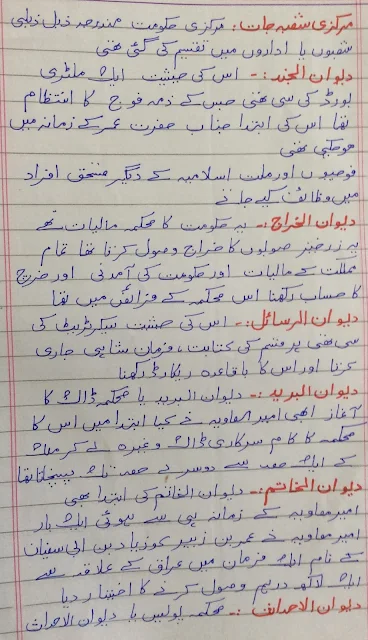 مرکزی شعبہ جات: مرکزی حکومت مندرجہ ذیل ذیلی
شعبوں یا اداروں میں تقسیم کی گئی تھی
دیوان الجند :- اس کی حیثیت ایک ملٹری
بورڈ کی سی تھی جس کے ذمہ فوج کا انتظام
تھا اس کی ابتدا جناب حضرت عمر کے زمانہ میں
ہو چکی تھی
فوجیوں اور ملت اسلامیہ کے دیگر مستحق افراد
میں وظائف کیے جاتے
دیوان الخراج :- یہ حکومت کا محکمہ مالیات تھے
یہ زرخیز صوبوں کا خراج وصول کرتا تھا تمام
مملکت کے مالیات اور حکومت کی آمدنی اور خرچ
کا حساب رکھنا اس محکمہ کے فرائض میں تھا
دیوان الرسائل :- اس کی حیثیت سیکرٹریٹ کی
سی تھی ہر قسم کی کتابت، فرمان شاہی جاری
کرنا اور اس کا باقاعدہ ریکارڈ رکھنا
دیوان البرید :- دیوان البرید یا محکمہ ڈاک کا
آغاز بھی امیر معاویہ نے کیا ابتدا میں اس کا
محکمہ کا کام سرکاری ڈاک وغیرہ لے کر ملک
کے ایک حصہ سے دوسرے حصہ تک پہنچاتا تھا
دیوان الخاتم :- دیوان الخاتم کی ابتدا بھی
امیر معاویہ کے زمانہ ہی سے ہوئی ایک بار
امیر معاویہ نے عمر بن زبیر کو زیاد بن ابی سفیان
کے نام ایک فرمان میں عراق کے علاقہ سے
ایک لاکھ درہم وصول کرنے کا اختیار دیا
دیوان الاحداث :- محکمہ پولیس یا دیوان الاحداث